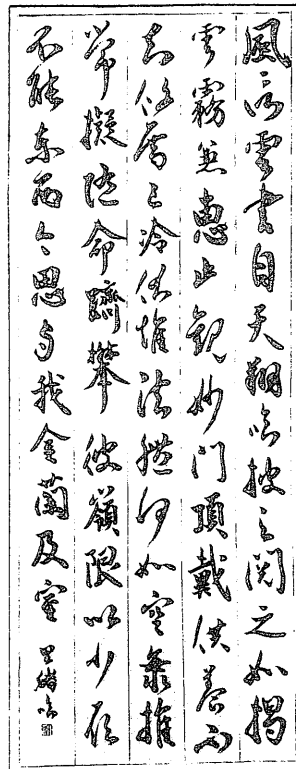 風信雲書自天翔臨披之閱之如揭
雲霧兼惠止觀妙門頂戴供養不
知攸厝已冷伏惟法體何如空海推
常擬隨命躋攀彼嶺限以少願
不能東西今思与我金蘭及室 臨